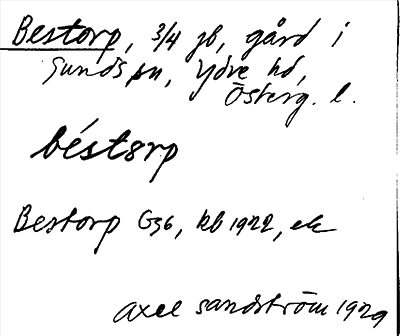 Bestorp, 3/4 jb, gård i
Sunds sn, Ydre hd,
Österg. l.
béstɤrp
Bestorp G36, kb 1922, ek
Axel Sandström 1929